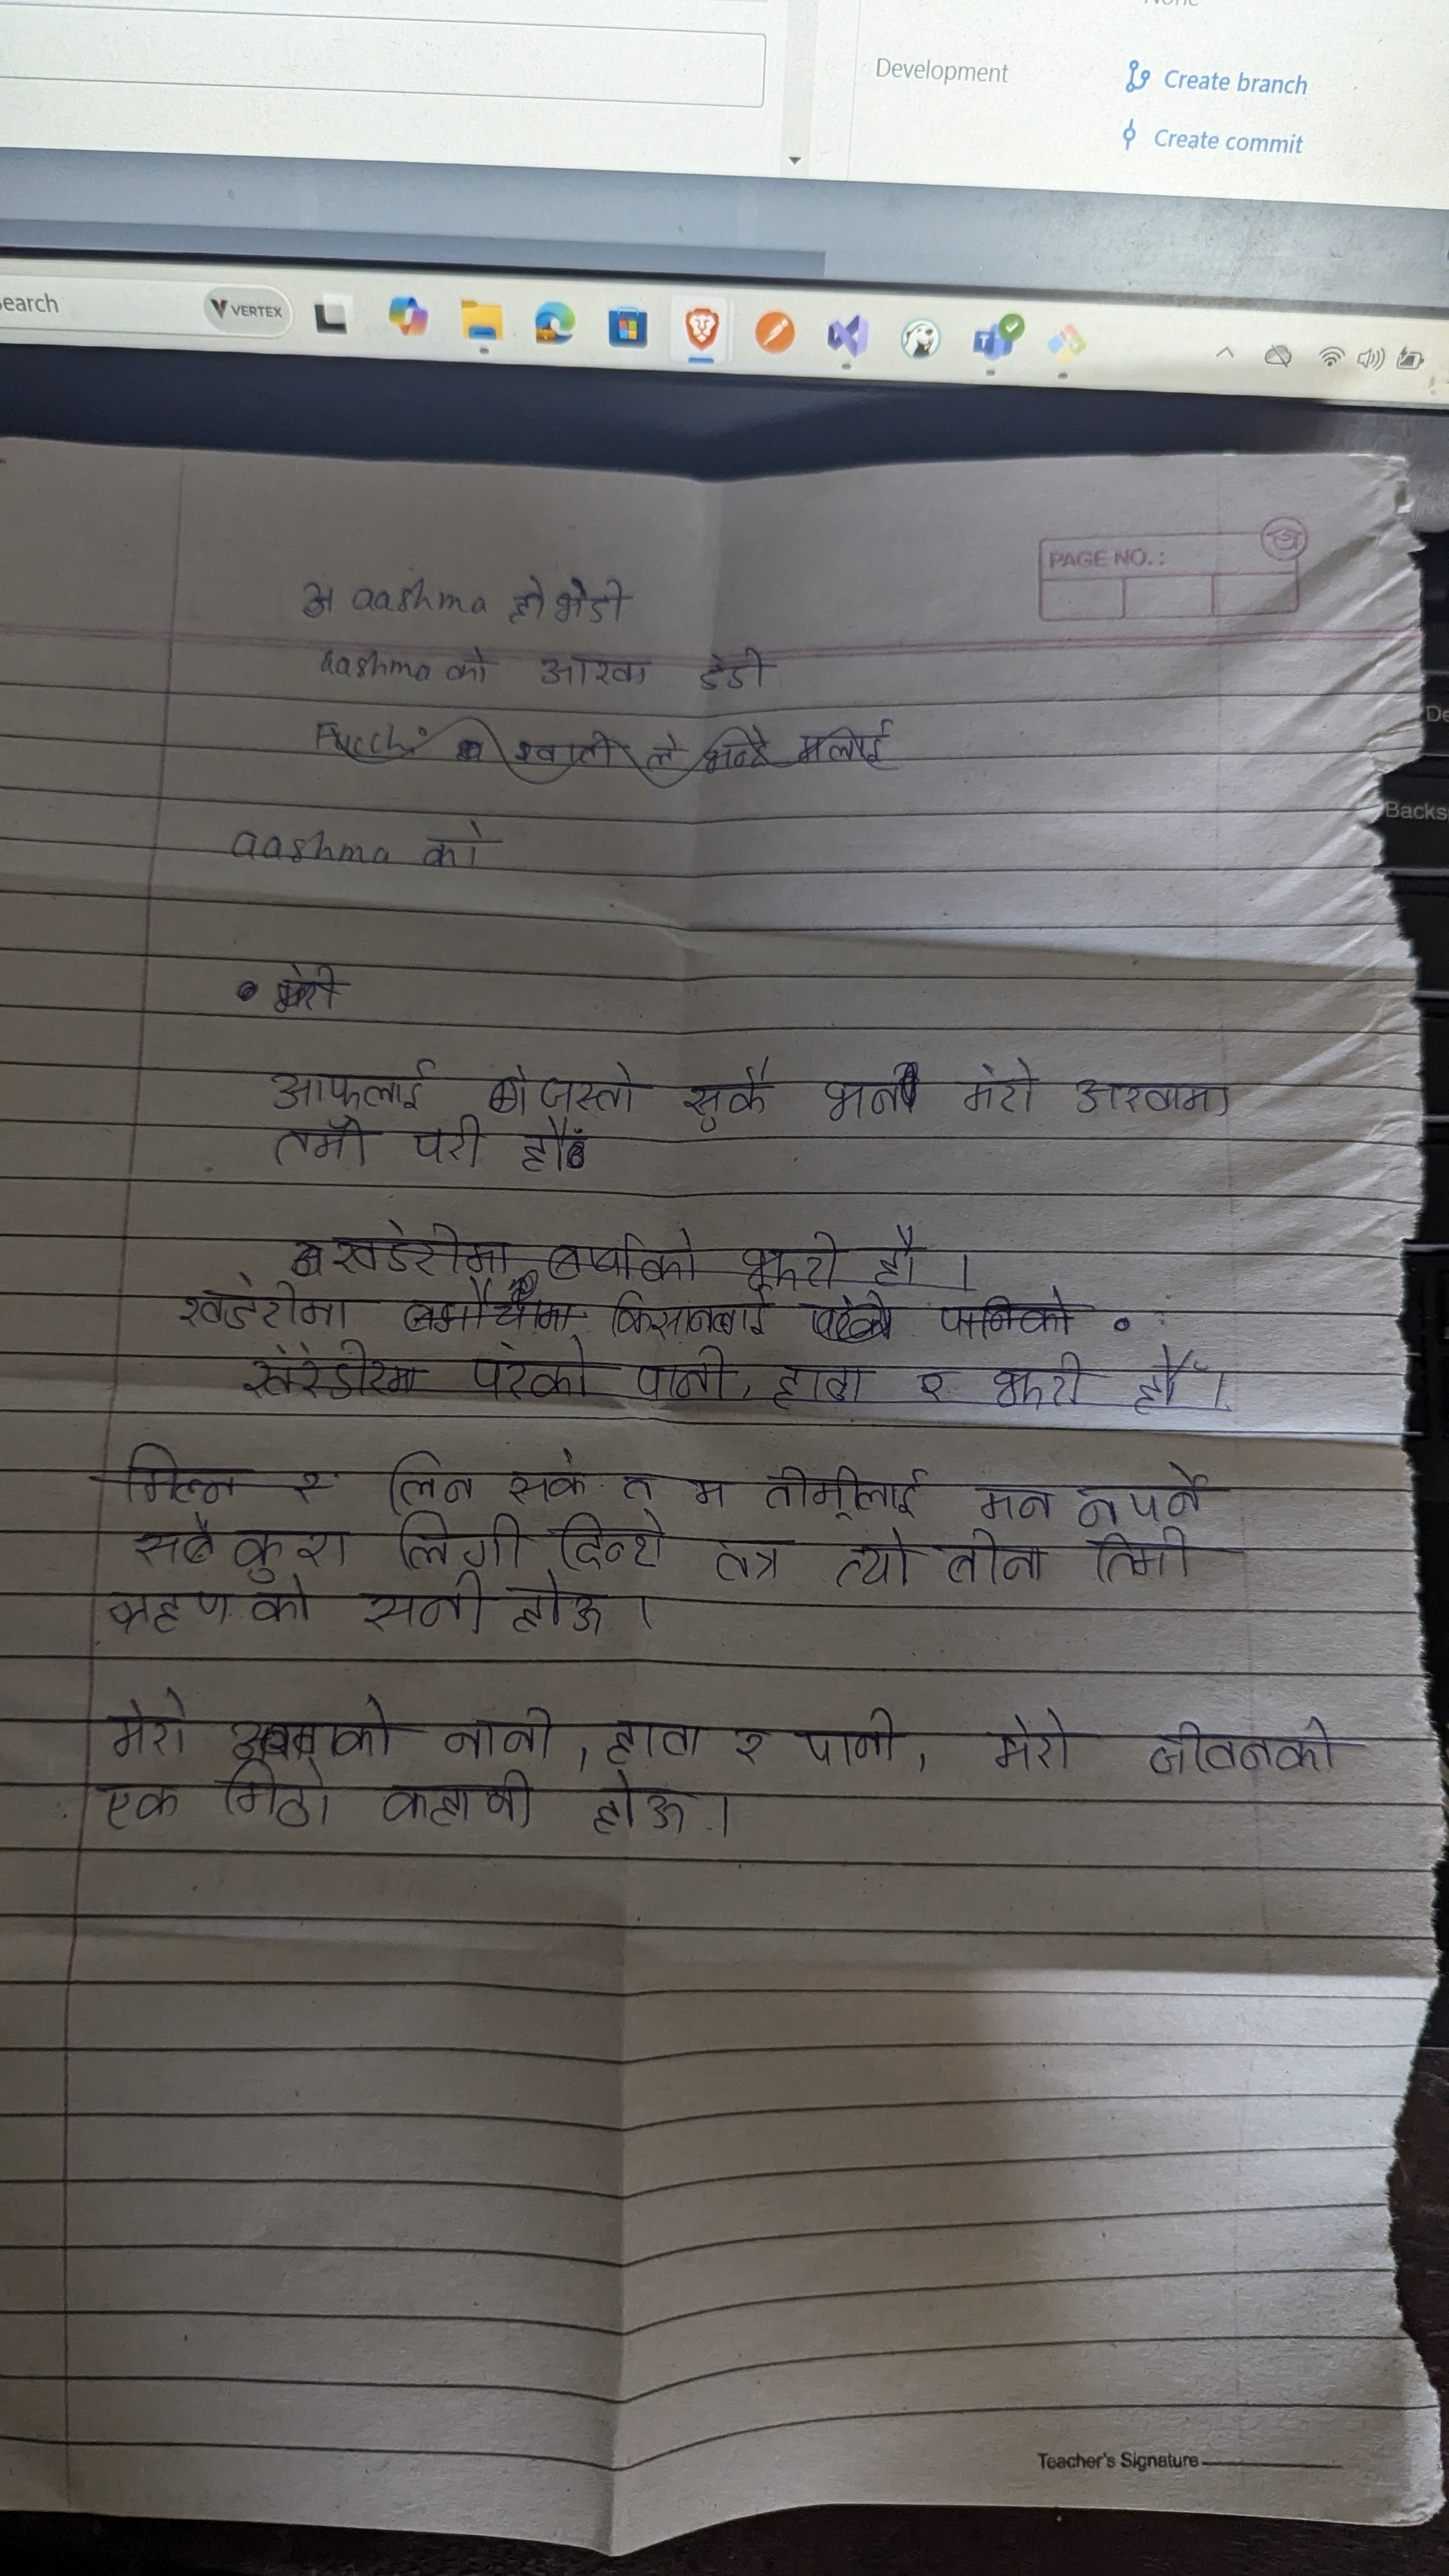 Development
Create branch
Create commit
earch
VERTEX
PAGE NO.:
aashma हो भेडी
aashma को आखा डेडी
Fucchi ले भन्दै मलाई
aashma को
Backs
आफुलाई जस्तो सुकै भन मेरो आखामा
तिमी परी हौ
खडेरीमा बर्षाको झरी हौ ।
खडेरीमा किसानलाई पानिको
खेरेडीरमा परेको पानी, हावा र झरी हौँ ।
मिल्न र लिन सके त म तीमीलाई मन नपर्ने
सबै कुरा लिगी दिन्थे तर त्यो बीना तिमी
ग्रहण को सनी होऊ ।
मेरो को नानी, हावा र पानी, मेरो जीवनको
एक मिठो कहानी होऊ ।
Teacher's Signature